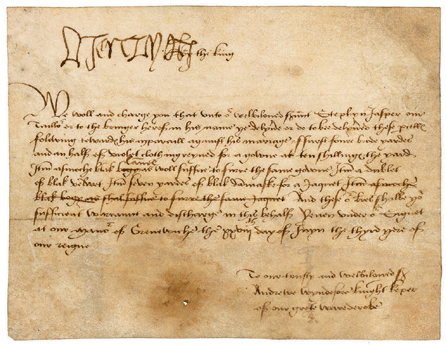 By the king
We woll and charge you that unto oʳ welbiloved Stephyn Jasper our
Taillor or to the bringer herof in his name ye delyver or do to be delyvered thise
folowing towards his apparaill against his mariage Furst foure brode yardes
and an half of violet clothing for a gowne at ten shillings the yard
Itm asmoche blak as woll suffice to furre the same gowne Itm a dublet
of blak velvet Itm seven yardes of blak Damaske for a Jaquet Itm asmoche
blak as shal suffice to furre the same Jaquet And thise oʳ lres shalbe yoʳ
sufficient warraunt and discharge in this behalf Yeven under oʳ Signet
at our Manoʳ of Grenewiche the day of the thyrd yere of
our reigne
To our trusty and welbiloved
Andrewe Wyndesore knight keper
of our grete warderobe